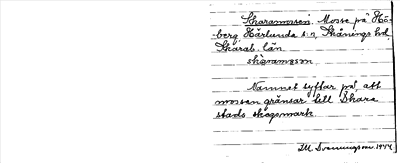 Skaramossen. Mosse på Hö-
berg Härlunda s:n, Skånings hd,
Skarab. län
skaramosen
Namnet syftar på att
mossen gränsar till Skara
stads skogsmark.
M. Svenningson 1944